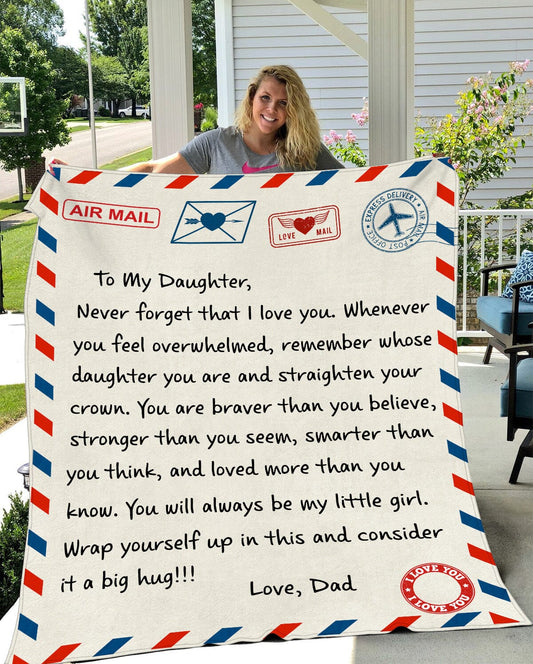 AIR MAIL
LOVE MAIL
EXPRESS DELIVERY
AIR MAIL
POST OFFICE
To My Daughter,
Never forget that I love you. Whenever
you feel overwhelmed, remember whose
daughter you are and straighten your
crown. You are braver than you believe,
stronger than you seem, smarter than
you think, and loved more than you
know. You will always be my little girl.
Wrap yourself up in this and consider
it a big hug!!!
Love, Dad
I LOVE YOU
I LOVE YOU